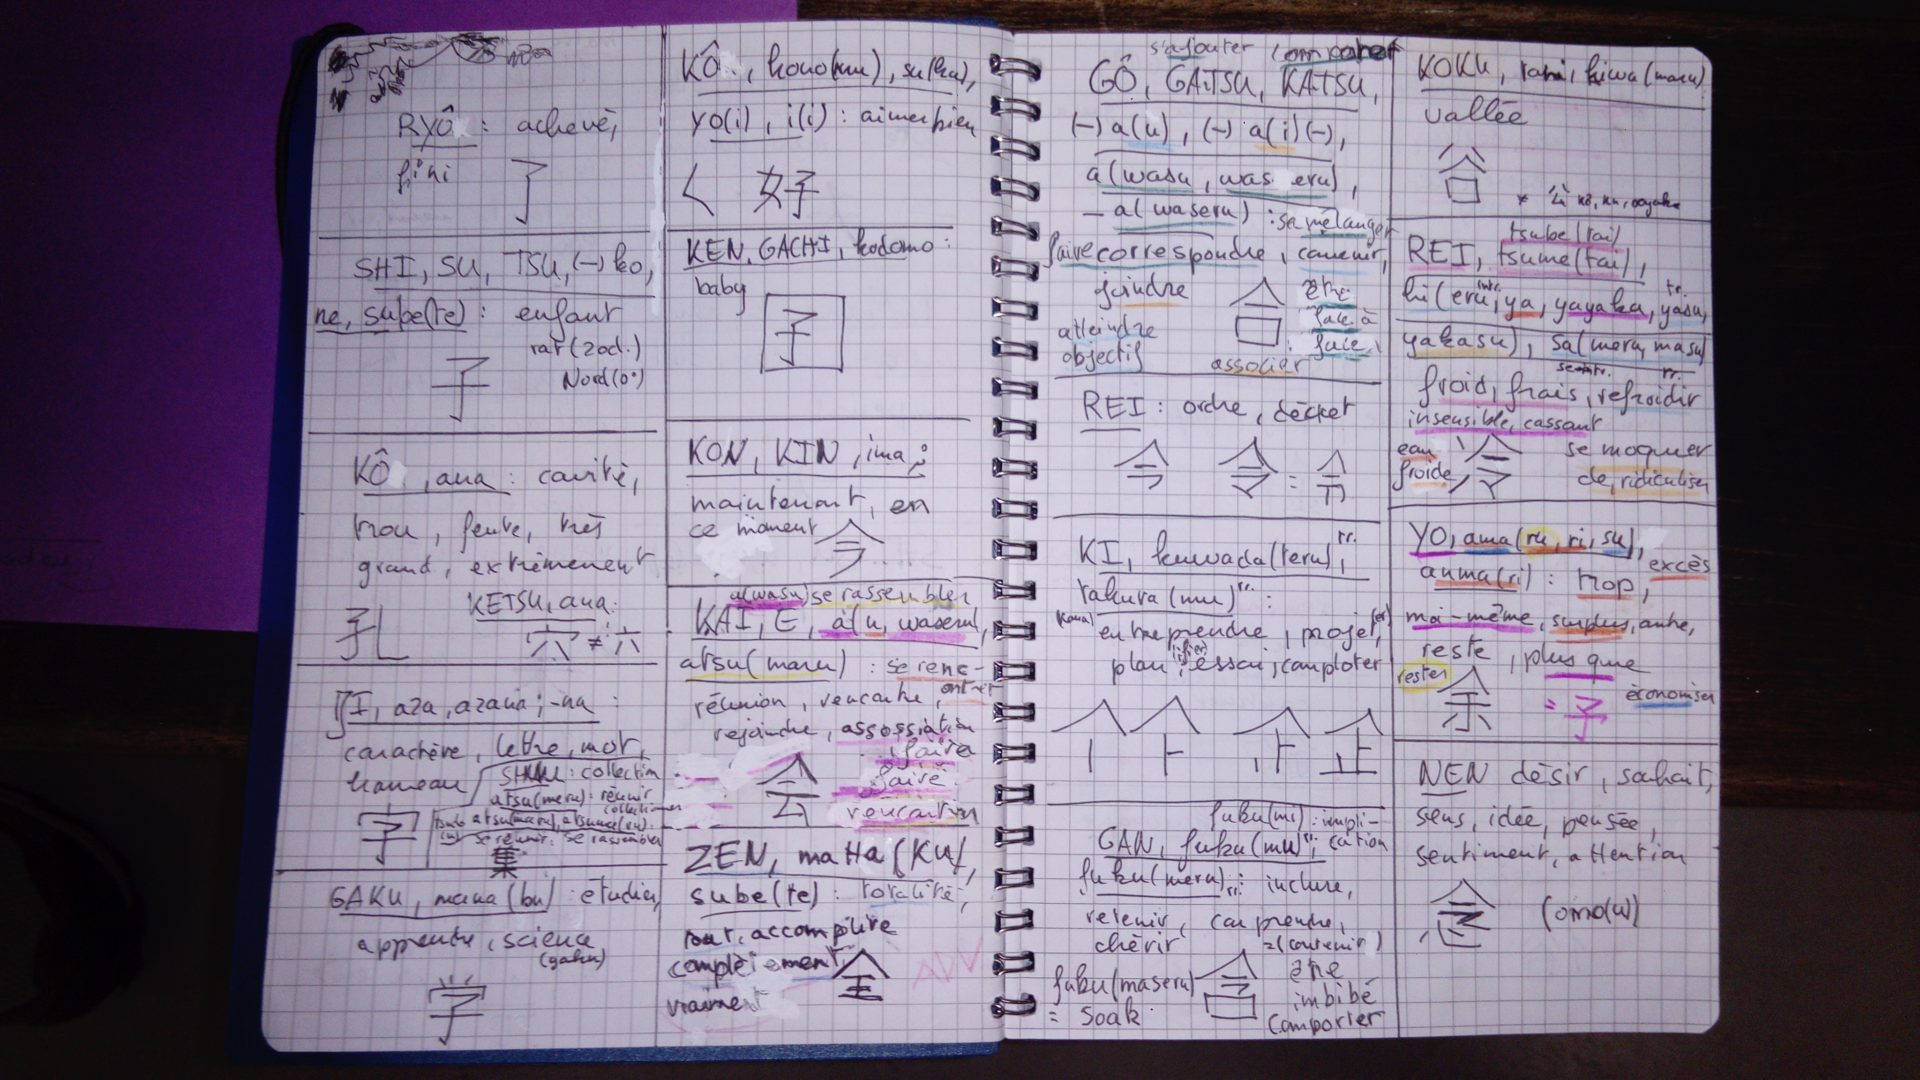 RYÔ : achevé,
fini
了
SHI, SU, TSU, (-) ko,
ne, sube(te) : enfant
rat (zod.)
Nord (0°)
子
KÔ, ana : cavité,
trou, fente, très
grand, extrêmement
KETSU, ana :
孔 穴 ≠ 六
JI, aza, azana ; -na :
caractère, lettre, mot,
hameau
SHUU : collection
atsu(meru) : réunir
atsu(maru),
se réunir, se rassembler
字
集
GAKU, mana(bu) : étudier,
apprendre, science
(gaku)
学
KÔ, kono(mu), su(ku),
yo(i), i(i) : aimer bien
く 好
KEN, GACHI, kodomo :
baby
子
KON, KIN, ima :
maintenant, en
ce moment
今
a(wasu) se rassembler
KAI, E, a(u, waseru),
atsu(maru) : se renc-
ontrer
réunion, rencontre,
rejoindre, assossiation
faire
会
ZEN, matta(KU),
sube(te) : totalité,
tout, accomplire
complètement,
vraiment
全
ADV
s'ajouter
GÔ, GATSU, KATSU,
(-) a(u), (-) a(i) (-),
a(wasu, waseru),
- a(waseru) : se mélanger
faire correspondre, convenir,
joindre
être
face à
face,
atteindre
objectif
合
associer
REI : ordre, décret
令
KI, kuwada(teru) tr.,
takura(mu) tr. :
entreprendre, projet,
plan, essai, comploter
企
fuku(mi) : impli-
cation
GAN, fuku(mu) tr.,
fuku(meru) tr. : inclure,
retenir, comprendre,
chérir
=(contenir)
être
imbibé
Comporter
fuku(maseru)
= soak
含
KOKU, tani, kiwa(maru)
vallée
谷
≠ 公 kô, ku, ooyake
tsube(tai)
REI, tsume(tai),
hi(eru, ya, yayaka, yasu,
yakasu), sa(meru, masu)
froid, frais, refroidir
insensible, cassant
eau
froide
冷
se moquer
de, ridiculiser
YO, ama(ru, ri, su),
anma(ri) : trop,
excès
moi-même, surplus, autre,
reste, plus que
rester
余
= 予
économiser
NEN désir, souhait,
sens, idée, pensée,
sentiment, attention
念
(omo(u))